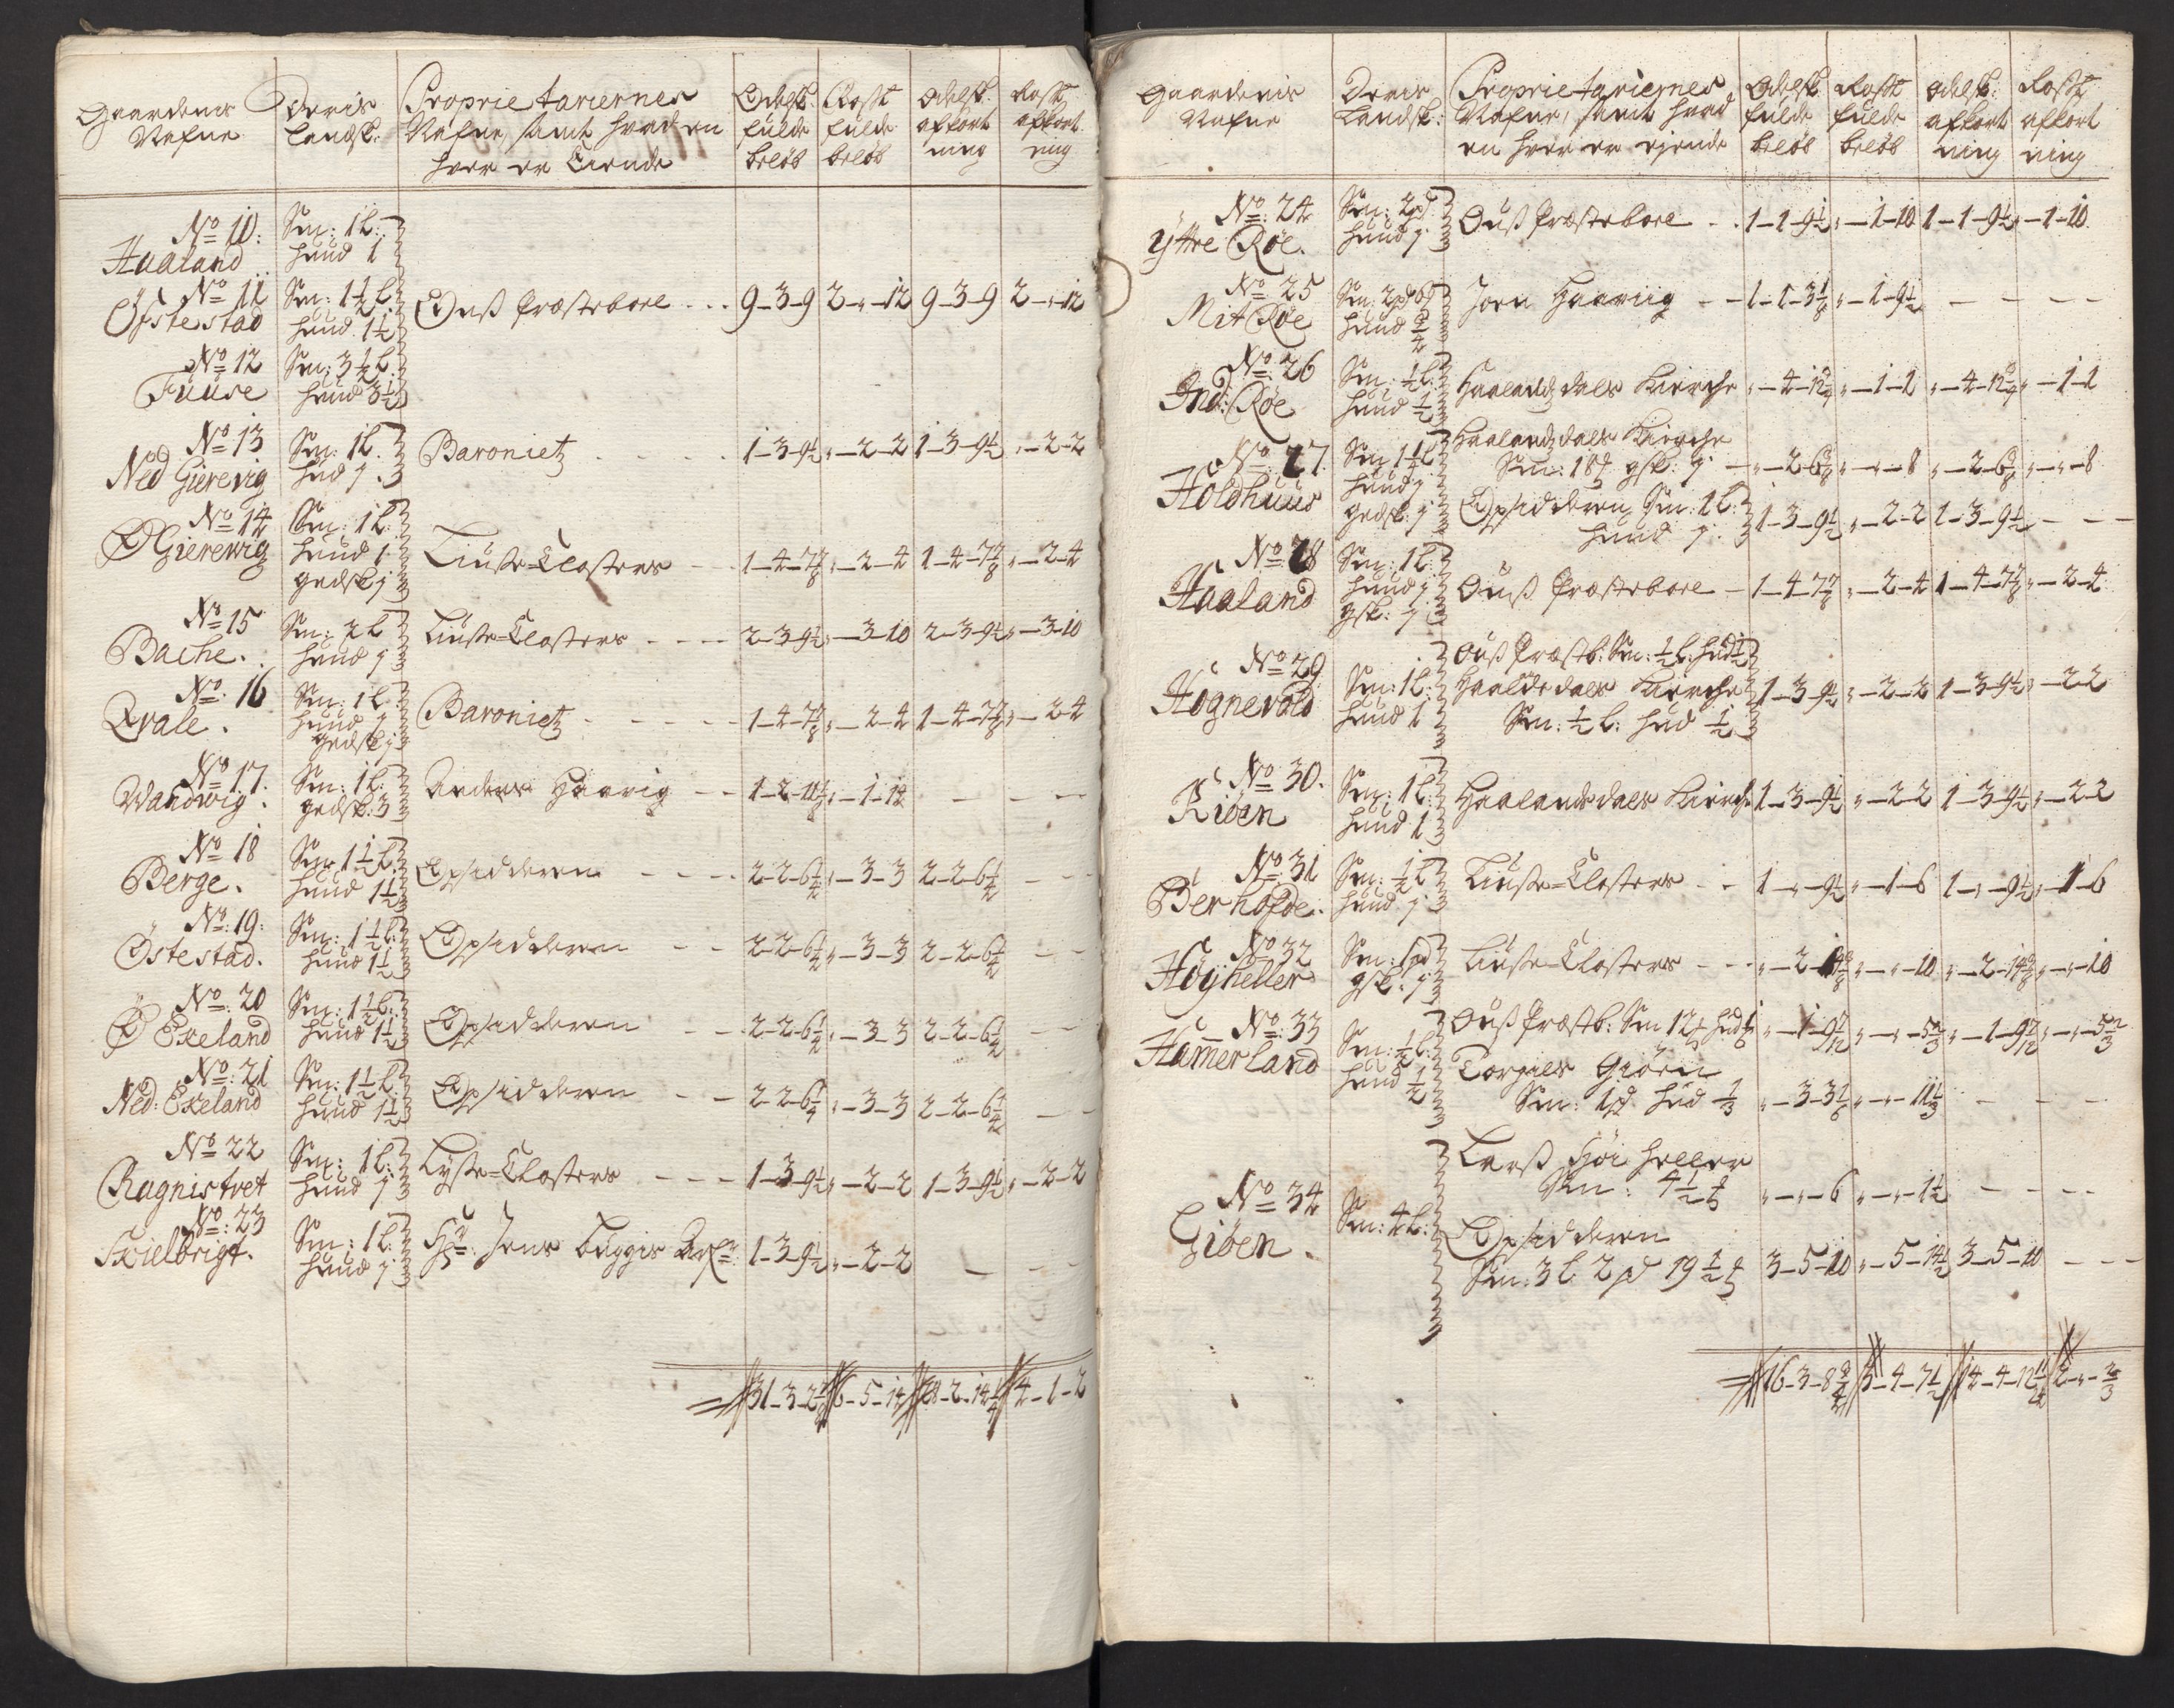 Gaardenis Nafne | Deris Landsk: | Proprietariernes Nafne, samt hvad en hver er Eiende | Odelsk: fulde beløb | Rostt: fulde beløb | Odelsk: afkortning | Rostt: afkortning
No 10: Haaland | Sm: 1 L: hund 1
No 11 Öfstestad | Sm: 1½ L: hund 1½ | Ouß Præstebole | 9-3-9 | 2-"-12 | 9-3-9 | 2-"-12
No 12 Fuuse | Sm: 3½ L: hund 3½
No 13 Ned Gierevig | Sm: 1 L: hud j | Baroniet | 1-3-9½ | "-2-2 | 1-3-9½ | "-2-2
No 14 Ø Gierevig | Sm: 1 L: hund 1 gedsk j | Liuse-Closters | 1-4-7⅞ | "-2-4 | 1-4-7⅞ | "-2-4
No 15 Bache. | Sm: 2 L hund j | Liuse-Closters | 2-3-9½ | "-3-10 | 2-3-9½ | "-3-10
No: 16 Qvale. | Sm: 1 L: hund j gedsk j | Baroniet | 1-4-7⅞ | "-2-4 | 1-4-7⅞ | "-2-4
No 17. Wandwig. | Sm: 1 L: gedsk: 3 | Anders Haavig | 1-2-11⅝ | "-1-14 | - | - -
No 18 Berge. | Sm 1½ L: hund 1½ | Opsidderen | 2-2-6¼ | "-3-3 | 2-2-6¼ | - -
No: 19: Östestad. | Sm: 1½ L: hund 1½ | Opsidderen | 2-2-6¼ | "-3-3 | 2-2-6¼ | - -
No: 20 Ø Exeland | Sm: 1½ L: hund 1½ | Opsidderen | 2-2-6¼ | "-3-3 | 2-2-6¼ | - -
No: 21 Ned: Exeland | Sm: 1½ L: hund 1½ | Opsidderen | 2-2-6¼ | "-3-3 | 2-2-6¼ | - -
No 22 Ragnistvet | Sm: 1 L: hund j | Lyse-Closters | 1-3-9½ | "-2-2 | 1-3-9½ | "-2-2
No: 23 Skielbrigt. | Sm: 1 L: hund j | Hr: Jens Buggis Arf: | 1-3-9½ | "-2-2 | - | - -
31-3-2⅞ | 6-5-14 | 28-2-14¼ | 4-1-2
Gaardenis Nafne | Deris Landsk: | Proprietariernes Nafne, samt hvad en hver er ejende | Odelsk: fulde beløb | Rostt: fulde beløb | Odelsk: afkortning | Rostt: afkortning
No: 24 Yttre Røe. | Sm: 2 pd: hund j | Ouß Præstebole | 1-1-9½ | "-1-10 | 1-1-9½ | "-1-10
No 25 Mit Røe | Sm: 2 pd 6 hund ¾ | Joen Haaviig | 1-1-3⅛ | "-1-9½ | - - | - -
No: 26 Ind: Røe | Sm: ½ L: hund ½ | Haalandsdals Kirche | "-4-12¾ | "-1-1 | "-4-12¾ | "-1-1
No: 27. Holdhuus | Sm 1¼ L hund j gedsk: j | Haalandsdals Kirche Sm: 18 gsk: j | "-2-6⅜ | "-"-8 | "-2-6⅜ | "-"-8
Opsidderen Sm: 1 L: hund j: | 1-3-9½ | "-2-2 | 1-3-9½ | - -
No: 28 Haaland | Sm: 1 L: hund j gsk: j | Ouß Præstebole | 1-4-7⅞ | "-2-4 | 1-4-7⅞ | "-2-4
No 29 Hognevold | Sm: 1 L: hund 1 | Ouß Præstb: Sm: ½ L: hud ½ Haaldsdals Kirche Sm: ½ L: hud ½ | 1-3-9½ | "-2-2 | 1-3-9½ | "-2-2
No: 30. Riöen | Sm: 1 L: hund 1 | Haalandsdals Kirche | 1-3-9½ | "-2-2 | 1-3-9½ | "-2-2
No: 31 Berhofde. | Sm: ½ L hund j | Liuse-Closters | 1-"-9½ | "-1-6 | 1-"-9½ | "-1-6
No 32 Höyheller | Sm: 1 pd gsk: j | Liuse-Closters | "-2-14⅜ | "-"-10 | "-2-14⅜ | "-"-10
No: 33 Hamerland | Sm: ½ L: hund ½ | Ouß Præstb: Sm 12 hud ⅙ | "-1-9 7/12 | "-"-5⅔ | "-1-9 7/12 | "-"-5⅔
Torgiels Giöen Sm: 1 pd hud ⅓ | "-3-3⅙ | "-"-11⅓ | - | -
No: 34 Giöen. | Sm: 4 L: | Larß Höi heller Sm: 4½ | "-"-6 | "-"-1½ | - - | - -
Opsidderen Sm: 3 L 2 pd 19½ | 3-5-10 | "-5-14½ | 3-5-10 | - -
16-3-8¾ | 3-4-7½ | 14-4-12 11/24 | 2-"-⅔